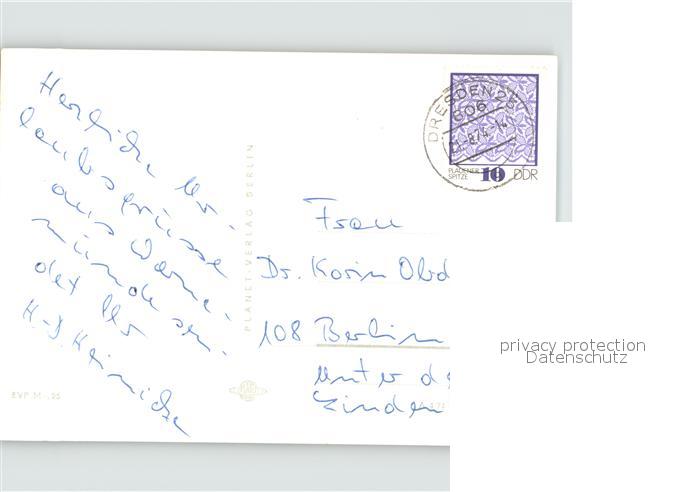 Herzliche Ur-
laubsgrüsse
aus Warne-
münde sen-
det Ihr
H.-J. Heinicke
PLANET-VERLAG BERLIN
EVP M -,25
DRESDEN 25
806
PLAUENER
SPITZE
10
DDR
Frau
Dr. Karin Obd
108 Berlin
Unter de
Linden
privacy protection
Datenschutz